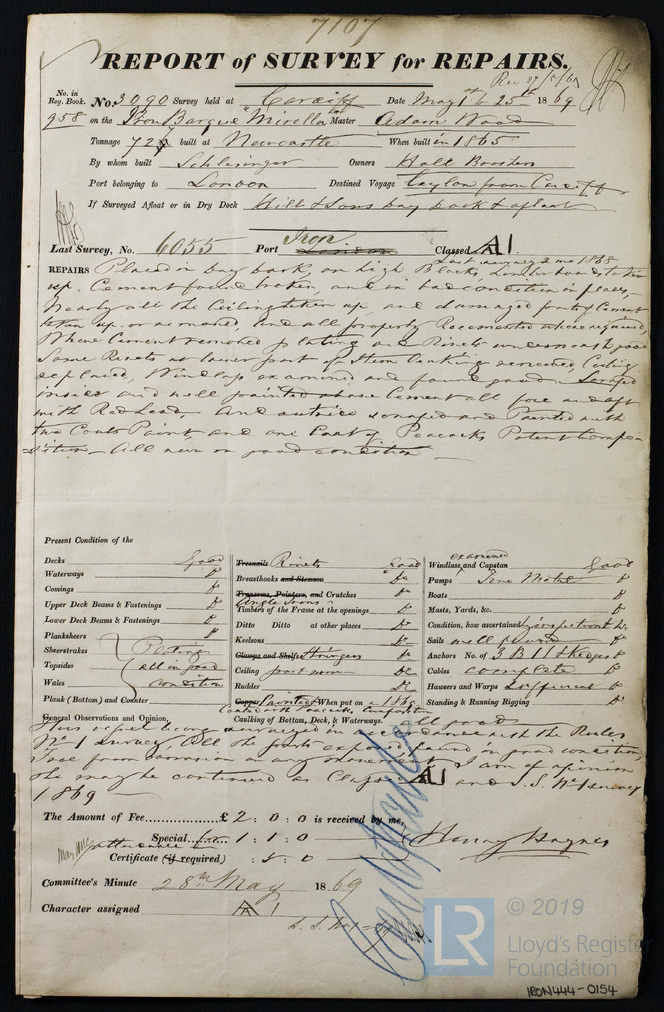 7107
REPORT of SURVEY for REPAIRS.
Rec 27/5/69
No. in Reg. Book. No. 3090 Survey held at Cardiff Date May 1st to 25th 1869
958 on the Iron Barque "Mirella" Master Adam Wood
Tonnage 72 built at Newcastle When built in 1865
By whom built Schlesinger Owners Hall Brothers
Port belonging to London Destined Voyage Ceylon from Cardiff
If Surveyed Afloat or in Dry Dock Hill & Sons Dry Dock & afloat
Last Survey, No. 6055 Port Iron London Classed A1.
Last survey 2 mo 1868
REPAIRS Placed in Dry Dock on high Blocks,
up. Cement found broken, and in bad condition in places,
Nearly all the Ceiling taken up, and damaged Cement
taken up or removed, and all properly Recemented where required,
Where Cement removed plating and Rivets good
Some Rivets at lower part of Stem Caulking renewed, Ceiling
replaced, Windlass examined and found good. Scraped
inside and well painted above Cement all fore and aft
with Red Lead, and outside scraped and Painted with
two Coats Paint, and one Coat of Peacocks Patent Compo-
sition, All now in good condition
Present Condition of the
Decks Good
Waterways Do
Comings Do
Upper Deck Beams & Fastenings Do
Lower Deck Beams & Fastenings Do
Planksheers Do
Sheerstrakes Plating
Topsides all in good
Wales condition
Plank (Bottom) and Counter
Treenails Rivets Good
Breasthooks and Stemson Do
Transoms, Pointers, and Crutches Do
Angle Irons
Timbers of the Frame at the openings Do
Ditto Ditto at other places Do
Keelsons Do
Clamps and Shelfs Stringers Do
Ceiling part worn Do
Rudder Do
Copper Painted When put on 1869
Coated with Peacocks Composition
Caulking of Bottom, Deck, & Waterways. all good
examined
Windlass and Capstan Good
Pumps Do
Boats Do
Masts, Yards, &c. Do
Condition, how ascertained by inspection Do
Sails well found Do
Anchors No. of 3 B 1 S Do
Cables complete Do
Hawsers and Warps Sufficient Do
Standing & Running Rigging Do
General Observations and Opinion,
This vessel having been surveyed in accordance with the Rules
No 1 survey, All the parts exposed found in good condition,
free from corrosion or any movement I am of opinion
she may be continued as Class A1 and S.S. No 1
1869
The Amount of Fee £2 : 0 : 0 is received by me,
Special for 1 : 1 : 0
attendance
Henry Haynes
Certificate (if required) : 5 : 0
Committee's Minute 28th May 1869
Character assigned A1
LR
© 2019
Lloyd's Register
Foundation
IRON444-0154